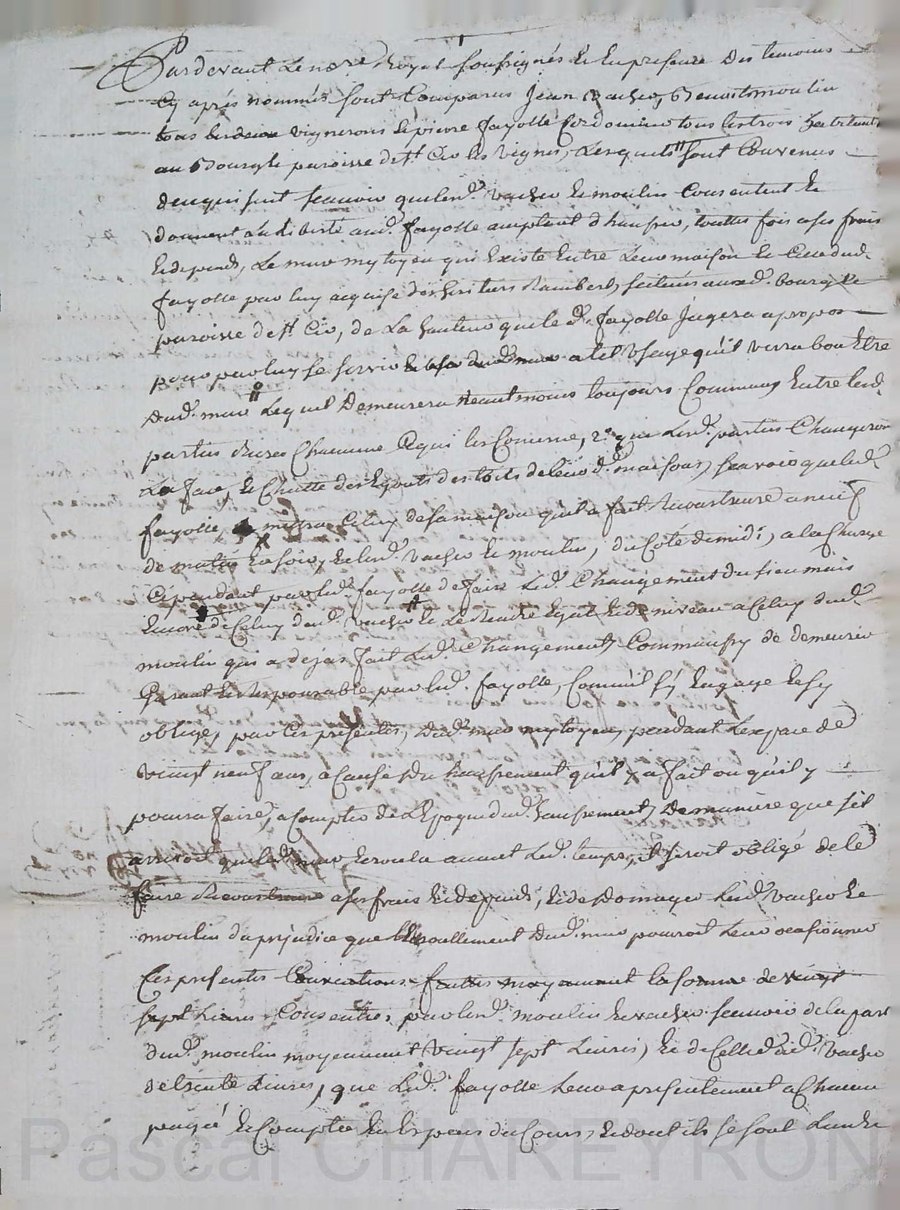 Pardevant Le no.re Royal soussignés Et En presence Des temoins
Cy aprés nommés sont Comparus Jean Vacher, Benoist moulin
tous deux vignerons Et pierre fayolle Cordonnier tous les trois habitants
au Bourg de paroisse de St Cir les vignes, Lesquels sont Convenus
de ce qui suit scauoir que les d. Vacher Et moulin Consentent Et
donnent La Liberté aud. fayolle d'hausser, touttes fois a ses frais
Et depends, Le mur mytoyen qui Existe Entre Leur maison Et Celle dud.
fayolle par luy acquise des heritiers Rambert, scituées aud. bourg Et
paroisse de St Cir, de La hauteur que le d. fayolle Jugera apropos
pour par luy se servir dud. mur a tel Usage qu'il verra bon Etre
Dud. mur Lequel Demeurera Neantmoins toujours Commun Entre lesd.
parties Chacune les Concerne, 2.o que Lesd. parties Changeront
La face, Et Chutte des Egouts des toits de leur d. maisons, scavoir que led.
fayolle, mettra Celuy de sa maison qu'il a fait Reconstruire a neuf
de matin Et soir, Et les d. Vacher Et moulin, du Coté de midi, a la Charge
Cependant par led. fayolle de faire Led. Changement du sien mais
Encore de Celuy dud. Vacher Et Le Rendre Egal Et de niveau a Celuy dud.
moulin qui a deja fait Led. Changement, Comm'aussy de demeurer
Garant Et Responsable par led. fayolle, Comm'il s'y Engage Et s'y
oblige, par Ces presentes, dud. mur mytoyen, pendant L'espace de
vingt neuf ans, a Cause du haussement qu'il y a fait ou qu'il y
poura faire, a Compter de L'Epoque dud. haussement, De maniere que s'il
arrivoit que led. mur Ecroula avant Led. temps, il seroit obligé de le
faire Reconstruire a ses frais Et depends, Et de Dedomager Lesd. Vacher Et
moulin du prejudice que L'Ecroullement dud. mur pouroit Leur ocasionner
Ces presentes Conventions faittes moyennant la somme de vingt
sept Livres Consenties par les d. moulin Et vacher scauoir de la part
dud. moulin moyennant vingt sept Livres, Et de Celle dud. Vacher
de trente Livres, que Led. fayolle Leur a presentement a Chacun
payé Et Compté En Especes du Cours, Et dont ils se sont
Pascal CHAREYRON